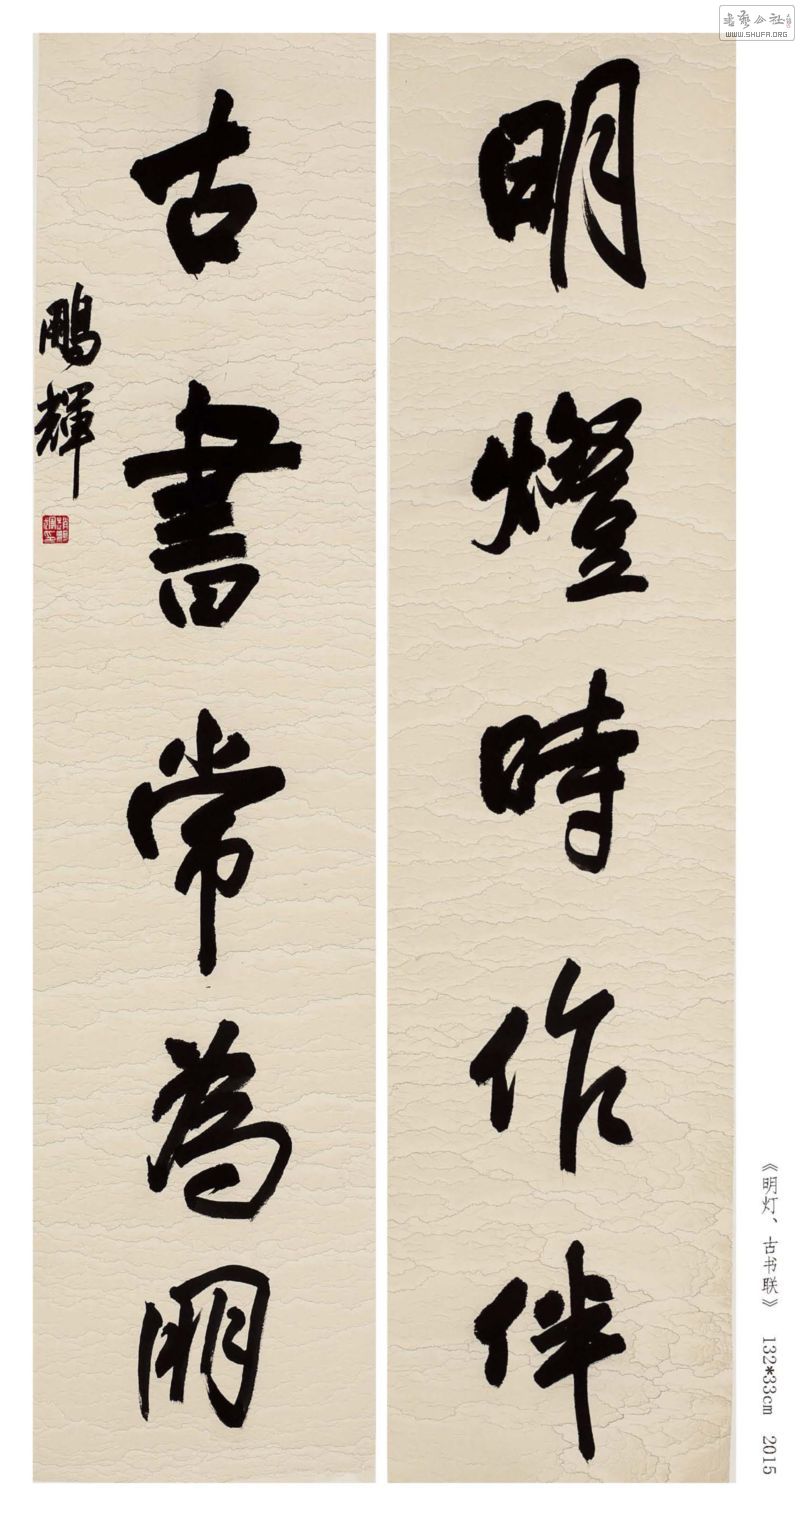 明燈時作伴
古書常為朋
鵬輝
《明灯、古书联》 132*33cm 2015
书艺公社
WWW.SHUFA.ORG